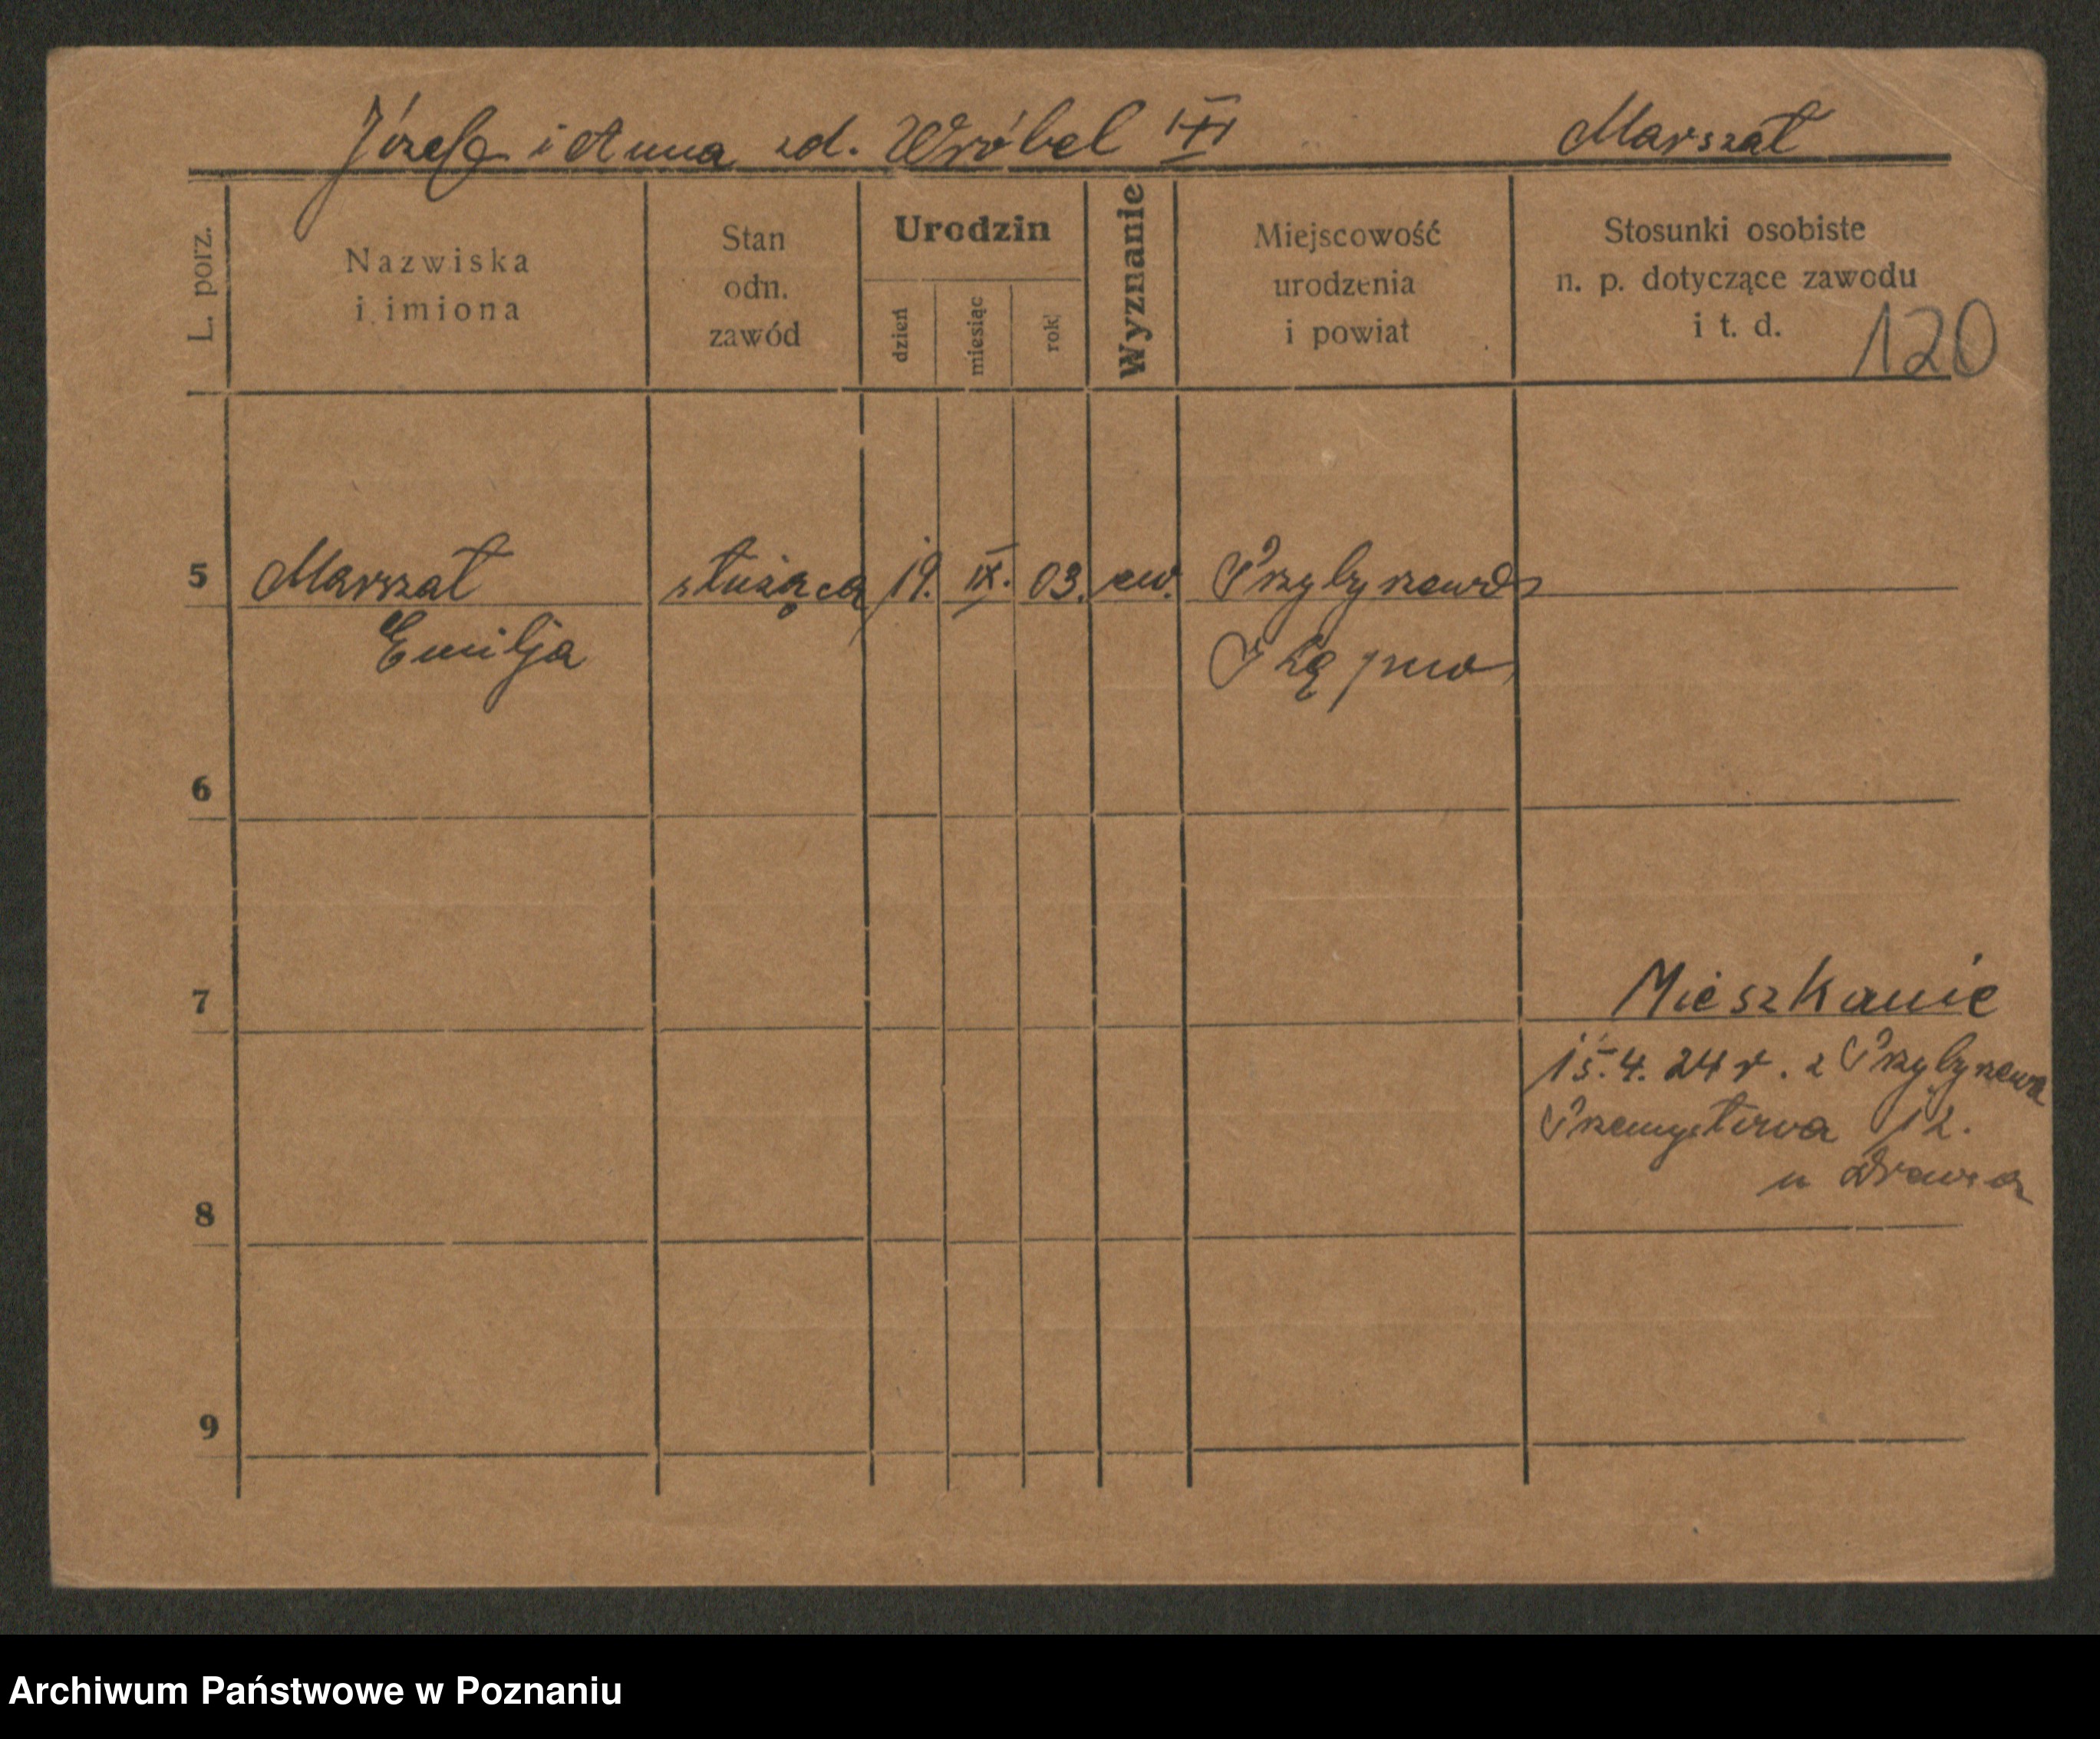 Józef i Anna zd. Wróbel III Marszał
L. porz.
Nazwiska
i imiona
Stan
odn.
zawód
Urodzin
dzień
miesiąc
rok
Wyznanie
Miejscowość
urodzenia
i powiat
Stosunki osobiste
n. p. dotyczące zawodu
i t. d.
120
5 Marszał służąca 19. IX. 03. ew. Przybyszewo
Emilja
6
7 Mieszkanie
15.4.24 r. z Przybyszewa
Przemysłowa 12.
8 u
9
Archiwum Państwowe w Poznaniu